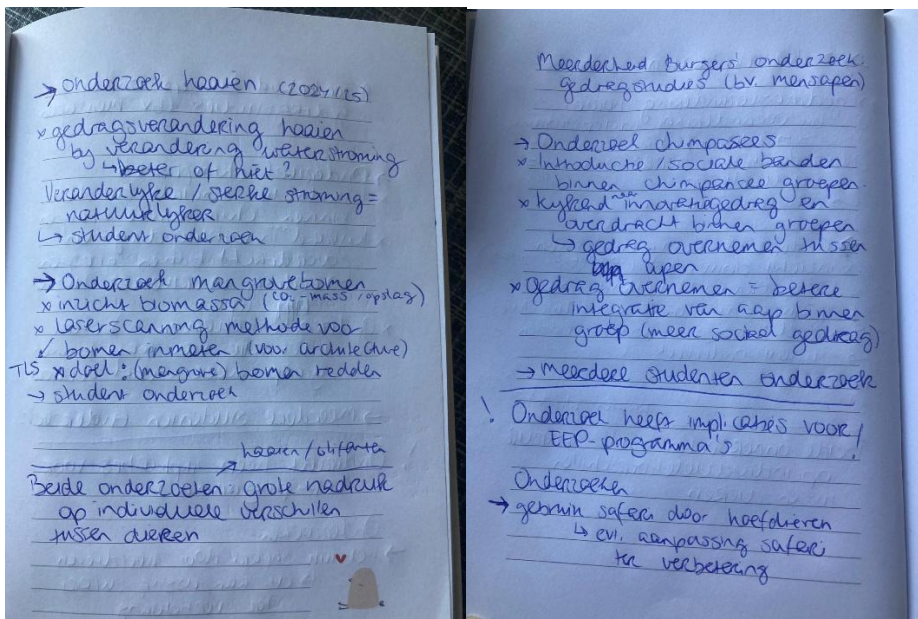 → onderzoek haaien (2024/25)
x gedragsverandering haaien
by verandering waterstroming
↳ beter of niet?
Veranderlyke / sterke stroming =
natuurlyker
↳ student onderzoek
→ Onderzoek mangrovebomen
x inzicht biomassa (CO2-mass/opslag)
x laserscanning methode voor
bomen inmeten (voor architecture)
TLS x doel: (mangrove) bomen redden
→ student onderzoek
haaien / olifanten
Beide onderzoeken grote nadruk
op individuele verschillen
tussen dieren
Meerderheid Burgers' onderzoek
gedragstudies (bv. mensapen)
→ Onderzoek chimpasees
x Introductie / sociale banden
binnen chimpansee groepen
x kykend naar innovatiegedrag en
overdracht binnen groepen
↳ gedrag overnemen tussen
apen
x gedrag overnemen = betere
integratie van aap binnen
groep (meer sociaal gedrag)
→ meerdere studenten onderzoek
! Onderzoek heeft implicaties voor
EEP-programma's !
Onderzoeken
→ gebruik safari door hoefdieren
↳ evt. aanpassing safari
ter verbetering